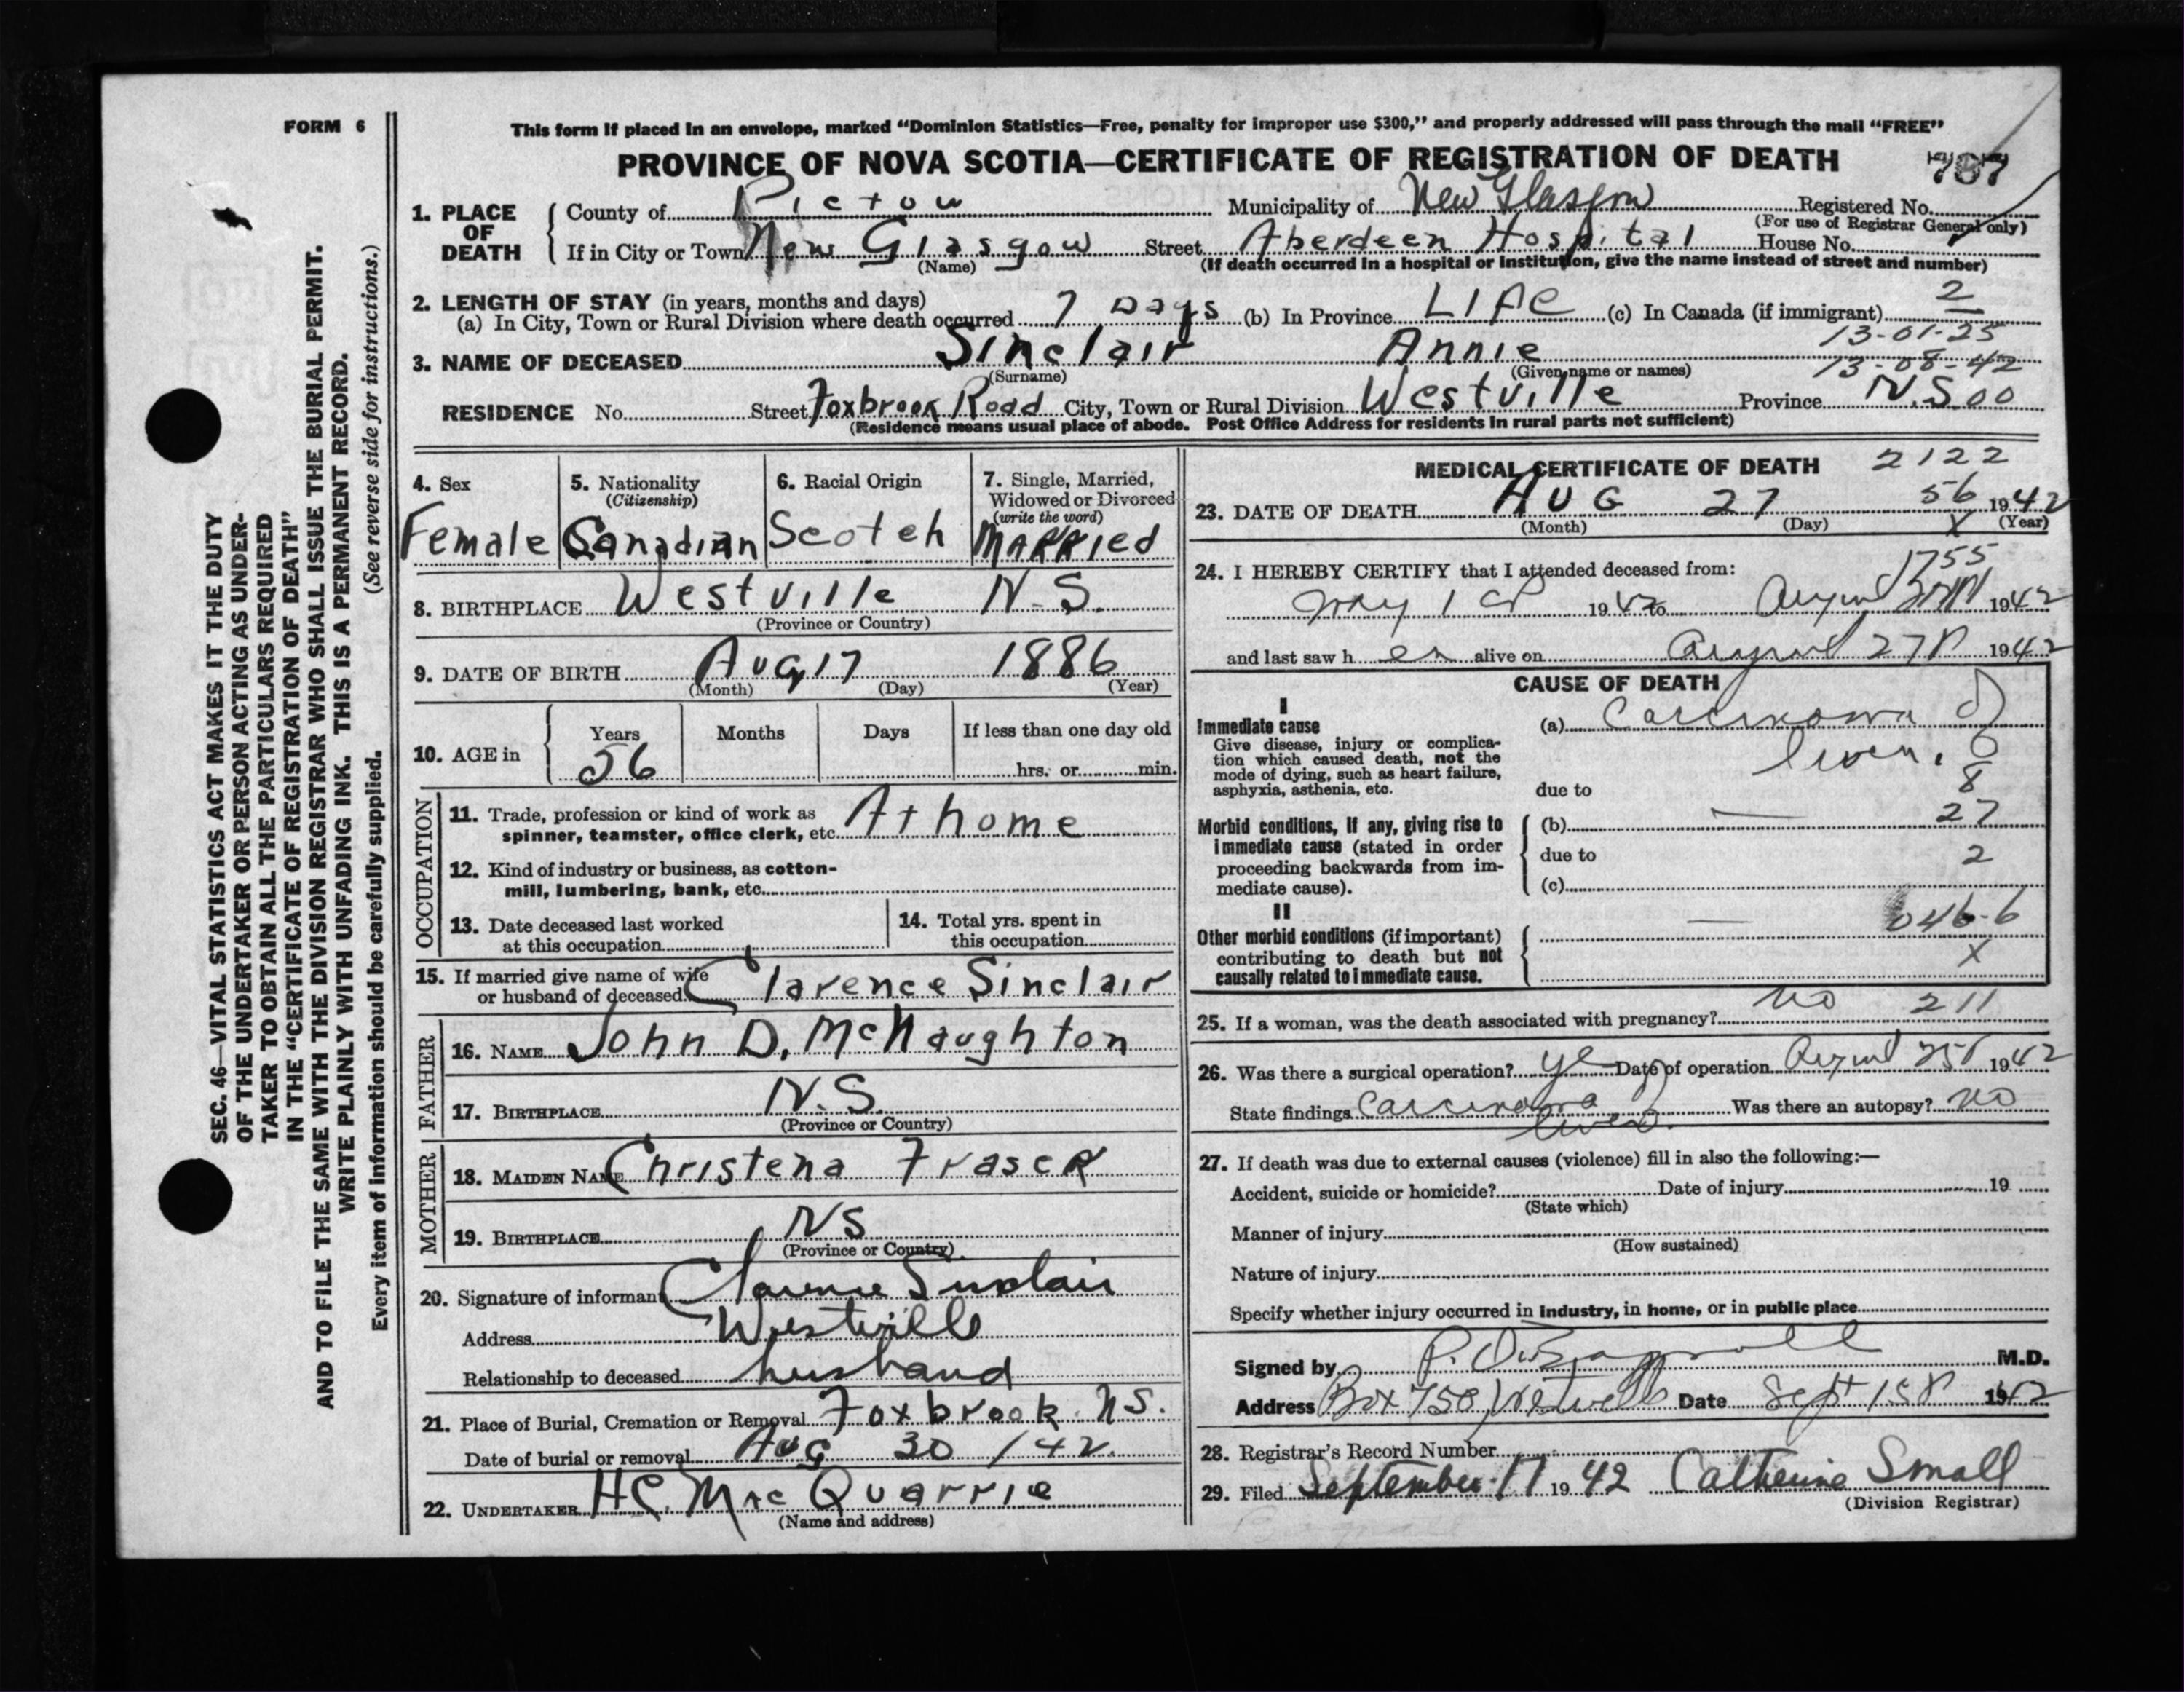 FORM 6
This form if placed in an envelope, marked “Dominion Statistics—Free, penalty for improper use $300,” and properly addressed will pass through the mail “FREE”
PROVINCE OF NOVA SCOTIA—CERTIFICATE OF REGISTRATION OF DEATH
1. PLACE OF DEATH
County of Pictou Municipality of New Glasgow Registered No.
(For use of Registrar General only)
If in City or Town New Glasgow Street Aberdeen Hospital House No.
(Name) (If death occurred in a hospital or institution, give the name instead of street and number)
2. LENGTH OF STAY (in years, months and days)
(a) In City, Town or Rural Division where death occurred 7 Days (b) In Province LIFE (c) In Canada (if immigrant) 2
13-01-25
3. NAME OF DECEASED Sinclair Annie
(Surname) (Given name or names) 13-08-42
RESIDENCE No. Street Foxbrook Road City, Town or Rural Division Westville Province N.S. 00
(Residence means usual place of abode. Post Office Address for residents in rural parts not sufficient)
4. Sex Female
5. Nationality (Citizenship) Canadian
6. Racial Origin Scotch
7. Single, Married, Widowed or Divorced (write the word) Married
8. BIRTHPLACE Westville N.S.
(Province or Country)
9. DATE OF BIRTH Aug 17 1886
(Month) (Day) (Year)
10. AGE in Years 56 Months Days If less than one day old
hrs. or min.
OCCUPATION
11. Trade, profession or kind of work as
spinner, teamster, office clerk, etc. At home
12. Kind of industry or business, as cotton-
mill, lumbering, bank, etc.
13. Date deceased last worked
at this occupation
14. Total yrs. spent in
this occupation
15. If married give name of wife
or husband of deceased Clarence Sinclair
FATHER
16. NAME John D. McNaughton
17. BIRTHPLACE N.S.
(Province or Country)
MOTHER
18. MAIDEN NAME Christena Fraser
19. BIRTHPLACE NS
(Province or Country)
20. Signature of informant Clarence Sinclair
Address Westville
Relationship to deceased husband
21. Place of Burial, Cremation or Removal Foxbrook N.S.
Date of burial or removal Aug 30 /42
22. UNDERTAKER H.C. MacQuarrie
(Name and address)
MEDICAL CERTIFICATE OF DEATH 2122
56
23. DATE OF DEATH AUG 27 1942
(Month) (Day) (Year)
X
1755
24. I HEREBY CERTIFY that I attended deceased from:
May 1st 1942 to August 1942
and last saw her alive on August 27 1942
CAUSE OF DEATH
I
Immediate cause
Give disease, injury or complica-
tion which caused death, not the
mode of dying, such as heart failure,
asphyxia, asthenia, etc.
(a) Carcinoma of
liver.
8
due to
Morbid conditions, if any, giving rise to
immediate cause (stated in order
proceeding backwards from im-
mediate cause).
(b) — 27
due to 2
(c)
II
Other morbid conditions (if important)
contributing to death but not
causally related to immediate cause.
— 046-6
X
25. If a woman, was the death associated with pregnancy? no 211
26. Was there a surgical operation? yes Date of operation August 25 1942
State findings Carcinoma of liver. Was there an autopsy? no
27. If death was due to external causes (violence) fill in also the following:—
Accident, suicide or homicide? Date of injury 19
(State which)
Manner of injury
(How sustained)
Nature of injury
Specify whether injury occurred in industry, in home, or in public place
Signed by M.D.
Address Box 758, Westville Date Sept 1942
28. Registrar’s Record Number
29. Filed September 17 1942 Catherine Small
(Division Registrar)
SEC. 46—VITAL STATISTICS ACT MAKES IT THE DUTY
OF THE UNDERTAKER OR PERSON ACTING AS UNDER-
TAKER TO OBTAIN ALL THE PARTICULARS REQUIRED
IN THE “CERTIFICATE OF REGISTRATION OF DEATH”
AND TO FILE THE SAME WITH THE DIVISION REGISTRAR WHO SHALL ISSUE THE BURIAL PERMIT.
WRITE PLAINLY WITH UNFADING INK. THIS IS A PERMANENT RECORD.
Every item of information should be carefully supplied. (See reverse side for instructions.)